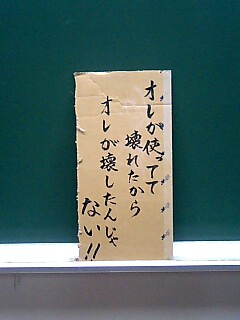 オレが使ってて
壊れたから
オレが壊したんじゃ
ない!!